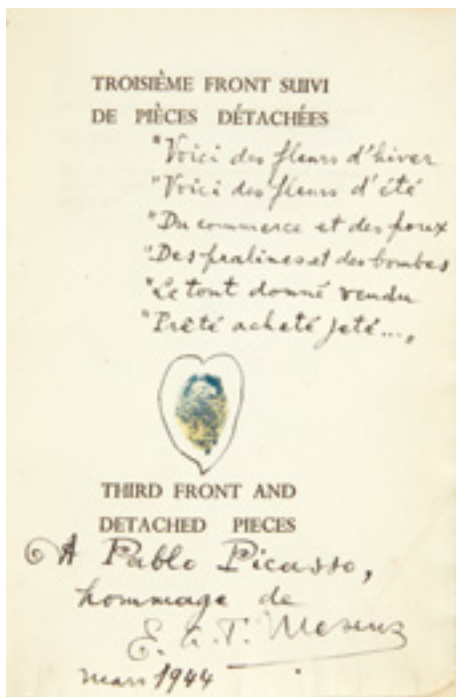 TROISIÈME FRONT SUIVI
DE PIÈCES DÉTACHÉES
"Voici des fleurs d'hiver
"Voici des fleurs d'été
"Du commerce et des poux
"Des pralines et des bombes
"Le tout donné vendu
"Prêté acheté jeté...,
THIRD FRONT AND
DETACHED PIECES
A Pablo Picasso,
hommage de
E. L. T. Mesens
mars 1944